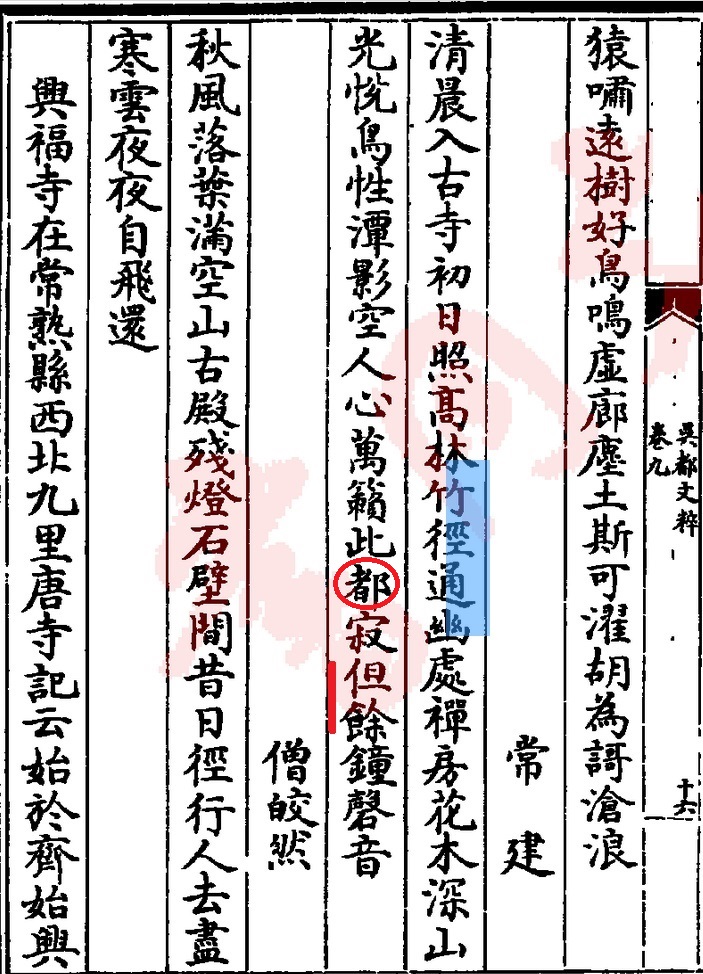 吳都文粹
卷九
十六
猿嘯遠樹好鳥鳴虛廊塵土斯可濯胡為謌滄浪
常建
清晨入古寺初日照髙林竹徑通幽處禪房花木深山
光恱鳥性潭影空人心萬籟此都寂但餘鐘磬音
僧皎然
秋風落葉滿空山古殿殘燈石壁間昔日徑行人去盡
寒雲夜夜自飛還
興福寺在常熟縣西北九里唐寺記云始於齊始興